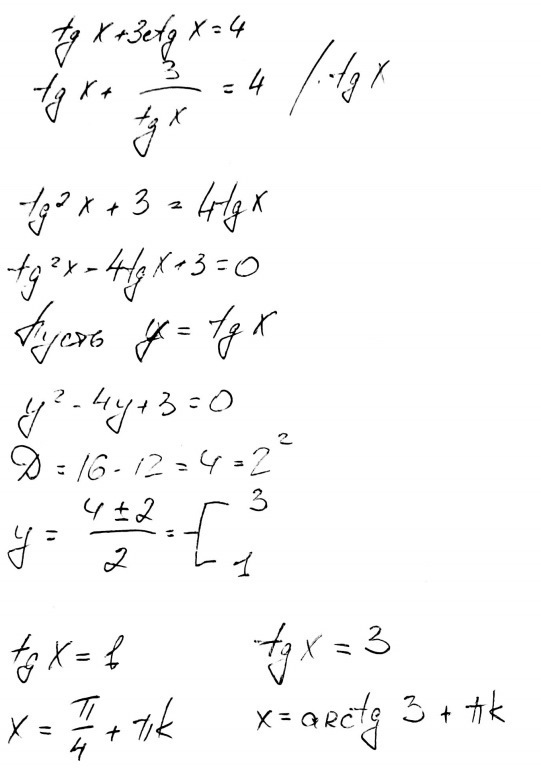 tg x + 3ctg x = 4
tg x + 3/tg x = 4 /· tg x
tg² x + 3 = 4tg x
tg² x - 4tg x + 3 = 0
Пусть y = tg x
y² - 4y + 3 = 0
D = 16 - 12 = 4 = 2²
y = (4 ± 2)/2 = [ 3
1
tg x = 1 tg x = 3
x = π/4 + πk x = arctg 3 + πk